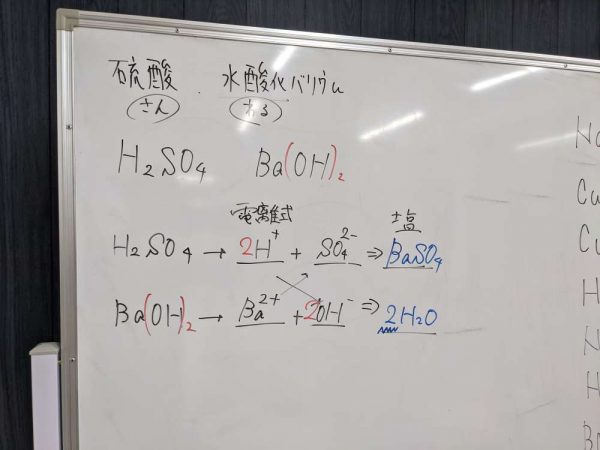 硫酸 . 水酸化バリウム
さん
H₂SO₄ Ba(OH)₂
電離式 塩
H₂SO₄ → 2H⁺ + SO₄²⁻ ⇒ BaSO₄
Ba(OH)₂ → Ba²⁺ + 2OH⁻ ⇒ 2H₂O
Cu
H
H